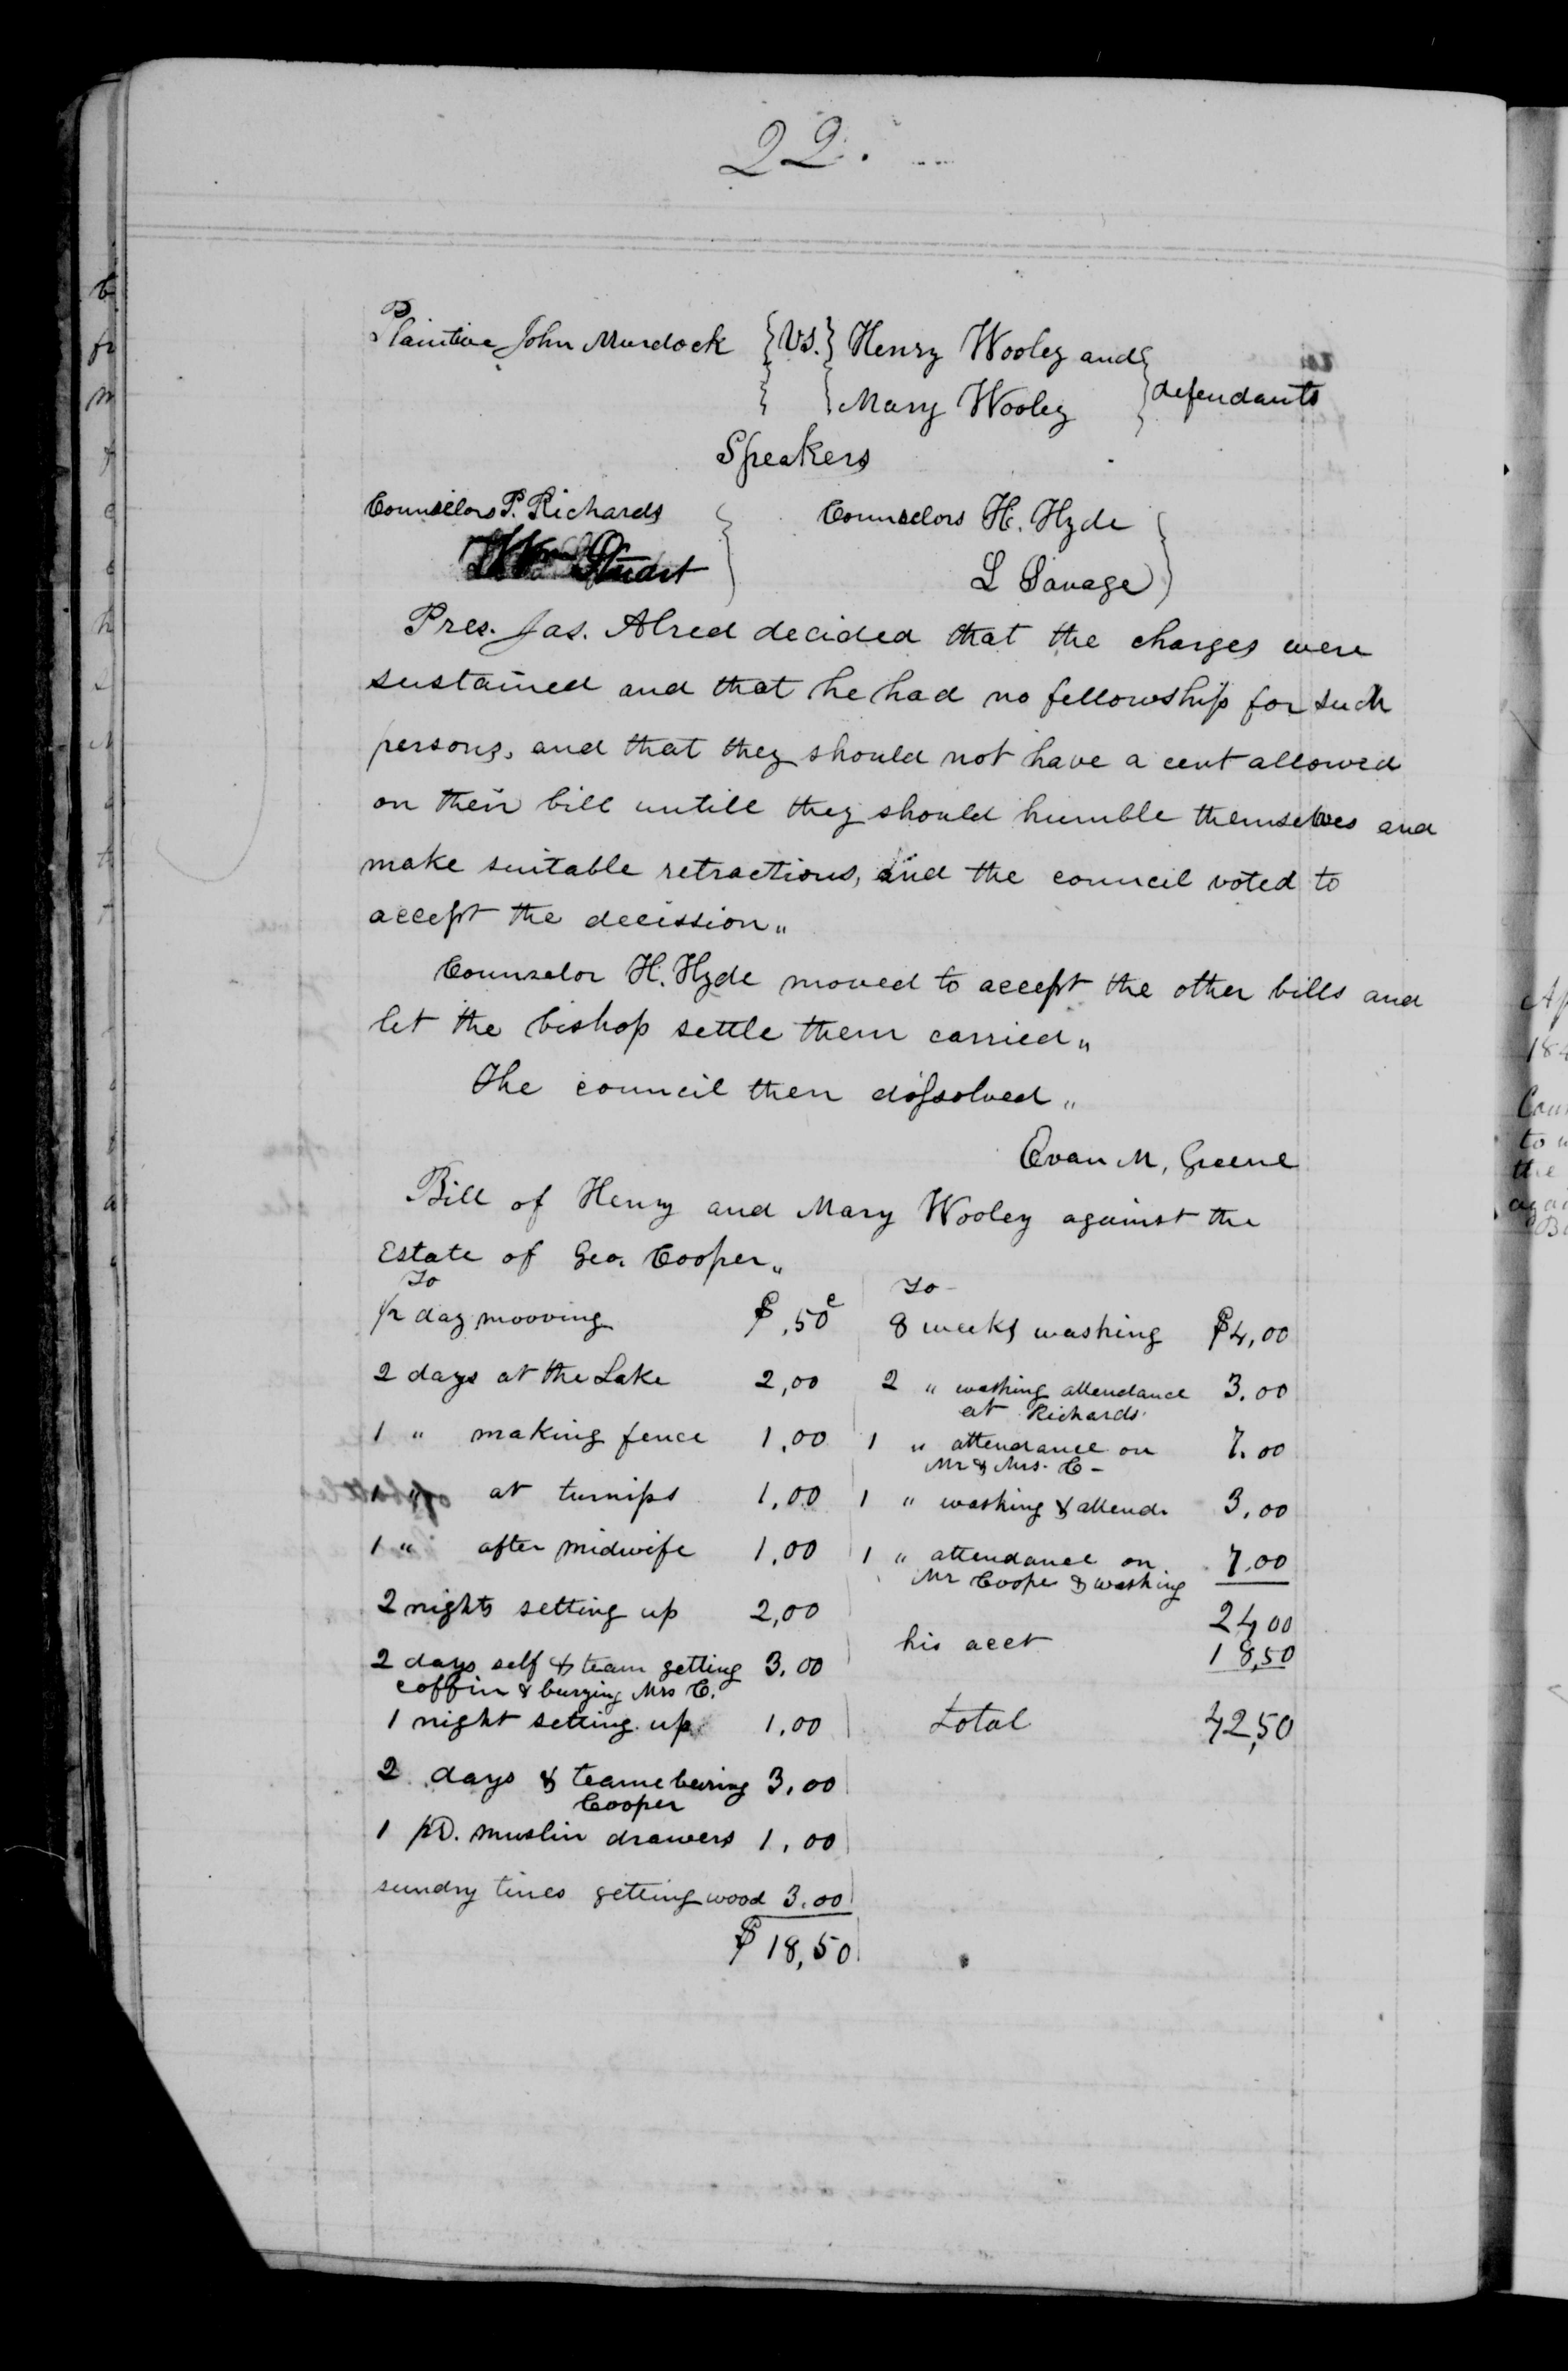 22.
Plaintive John Murdock } vs. } Henry Wooley and }
} } Mary Wooley } defendants
Speakers
Counsellors P. Richards } Counselors H. Hyde }
Wm Stuart } L Savage }
Pres. Jas. Alred decided that the charges were
sustained and that he had no fellowship for such
persons, and that they should not have a cent allowed
on their bill untill they should humble themselves and
make suitable retractions, and the council voted to
accept the decission„
Counselor H. Hyde moved to accept the other bills and
let the bishop settle them carried„
The council then dissolved„
Evan M, Greene
Bill of Henry and Mary Wooley against the
Estate of Geo. Cooper„
To
1/2 day mooving $,50c
2 days at the Lake 2,00
1 „ making fence 1,00
1 „ at turnips 1,00
1 „ after midwife 1,00
2 nights setting up 2,00
2 days self & team getting 3.00
coffin & burying Mrs C.
1 night setting up 1,00
2 days & teame buring 3,00
Cooper
1 pr. muslin drawers 1,00
sundry times getting wood 3.00
$18,50
To
8 weeks washing $4,00
2 „ washing attendance 3.00
at Richards
1 „ attendance on 7.00
Mr & Mrs. C-
1 „ washing & attend. 3,00
1 „ attendance on 7.00
Mr Cooper & washing
24,00
his acct 18,50
total 42,50